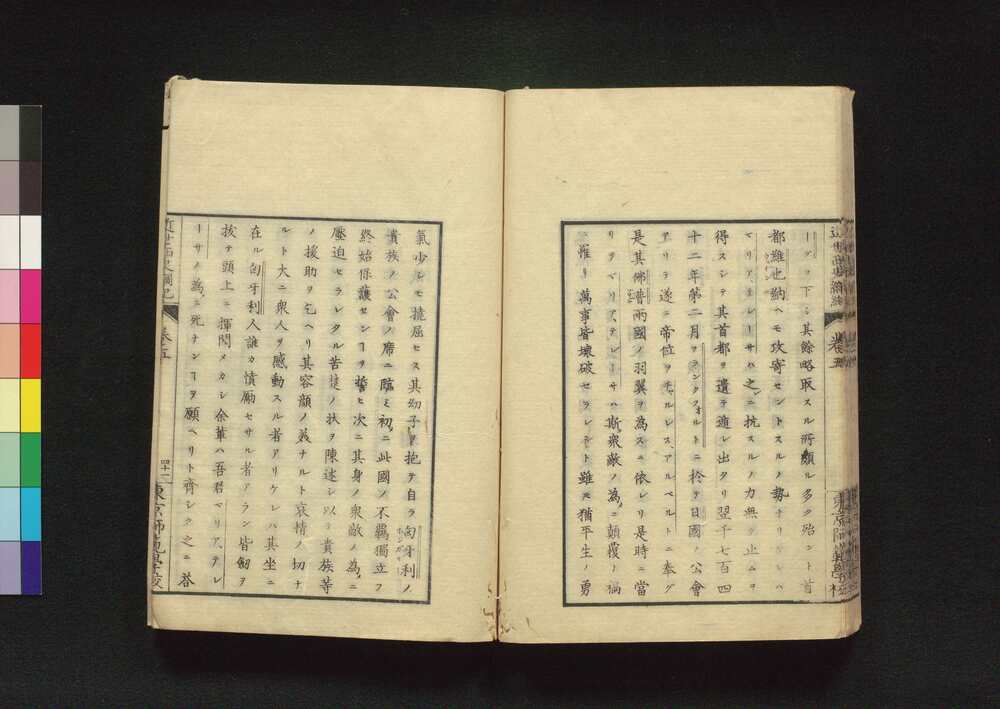 ーグヲ下シ其餘略取スル所頗ル多ク殆ント首
都維也納ヘモ攻寄セントスルノ勢ナリケレハ
マリアテレーサハ之ニ抗スルノ力無ク止ムヲ
得スシテ其首都ヲ遺テ遁レ出タリ翌千七百四
十二年第二月フランクフォルトニ於テ日國ノ公會
アリテ遂ニ帝位ヲチャルレスアルベルトニ奉グ
是其佛普兩國ノ羽翼ヲ為スニ依レリ是時ニ當
リテマリアテレーサハ斯衆敵ノ為ニ顛覆ノ禍
ニ罹リ萬事皆壊破セラレタリト雖モ猶平生ノ勇
卷五
氣少シモ撓屈セス其幼子ヲ抱テ自ラ匈牙利ノ
貴族ノ公會ノ席ニ臨ミ初ニ此國ノ不羈獨立ヲ
終始保護センヿヲ誓ヒ次ニ其身ノ衆敵ノ為ニ
壓迫セラレタル苦楚ノ状ヲ陳述シ以テ貴族等
ノ援助ヲ乞ヘリ其容顔ノ美ナルト哀情ノ切ナ
ルト大ニ衆人ヲ感動スル者アリケレハ其坐ニ
在ル匈牙利人誰カ憤勵セサル者アラン皆劒ヲ
拔テ頭上ニ揮閃メカシ余輩ハ吾君マリアテレ
ーサノ為ニ死ナンヿヲ願ヘリト齊シク之ニ荅
近世西史綱紀
卷五
四十一
東京師範學校